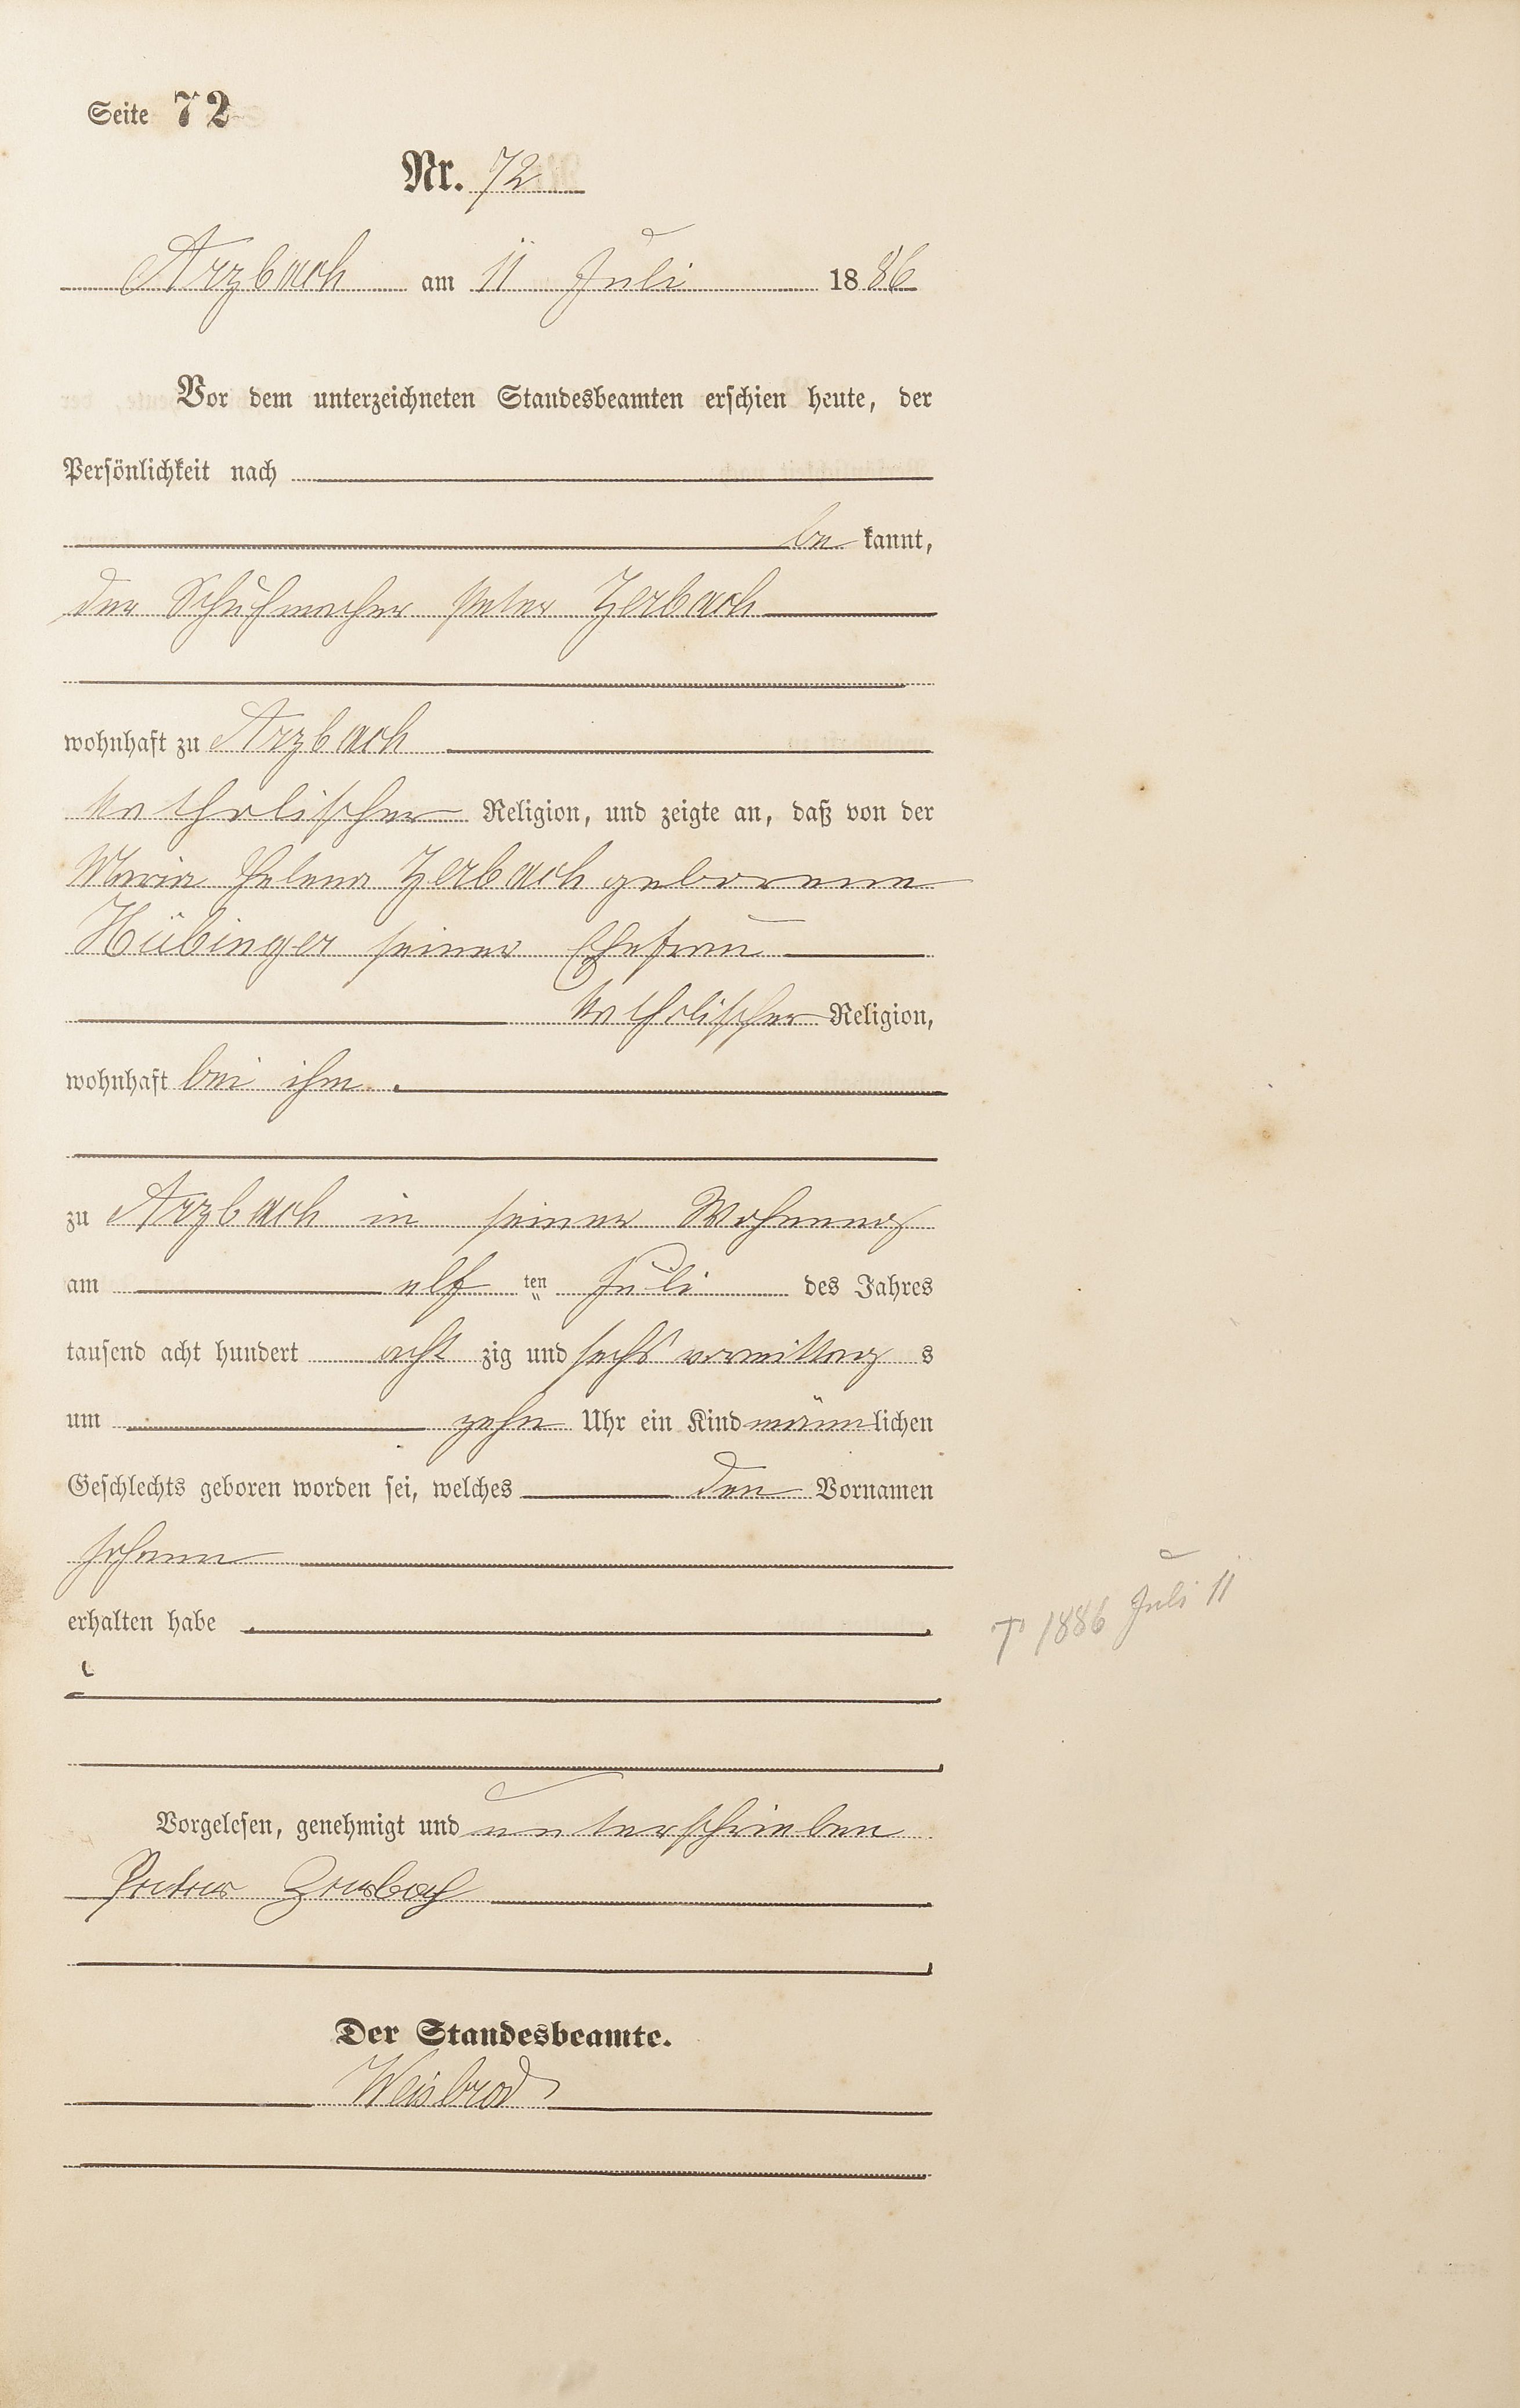 Seite 72
Nr. 72
Arzbach am 11 Juli 1886
Vor dem unterzeichneten Standesbeamten erschien heute, der
Persönlichkeit nach
be kannt,
der Schuhmacher Peter Zerbach
wohnhaft zu Arzbach
katholischer Religion, und zeigte an, daß von der
Maria Helena Zerbach geborene
Hübinger seiner Ehefrau
katholischer Religion,
wohnhaft bei ihm
zu Arzbach in seiner Wohnung
am elf ten Juli des Jahres
tausend acht hundert acht zig und sechs vormittag s
um zehn Uhr ein Kind männlichen
Geschlechts geboren worden sei, welches den Vornamen
Johann
erhalten habe
† 1886 Juli 11
Vorgelesen, genehmigt und unterschrieben
Peter Zerbach
Der Standesbeamte.
Weisbrod